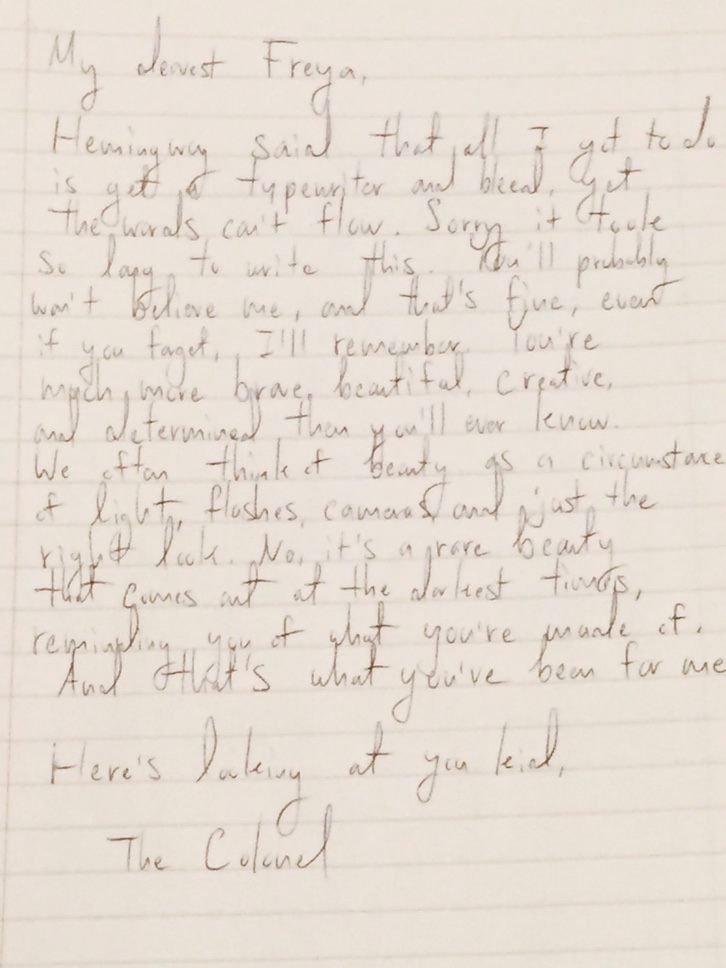 My dearest Freya,
Hemingway said that all I got to do
is get a typewriter and bleed. Yet
the words can't flow. Sorry it took
so long to write this. You'll probably
won't believe me, and that's fine, even
if you forget, I'll remember. You're
much more brave, beautiful, creative,
and determined then you'll ever know.
We often think of beauty as a circumstance
of light, flashes, cameras and just the
right look. No, it's a rare beauty
that comes out at the darkest times,
reminding you of what you're made of.
And that's what you've been for me
Here's looking at you kid,
The Colonel